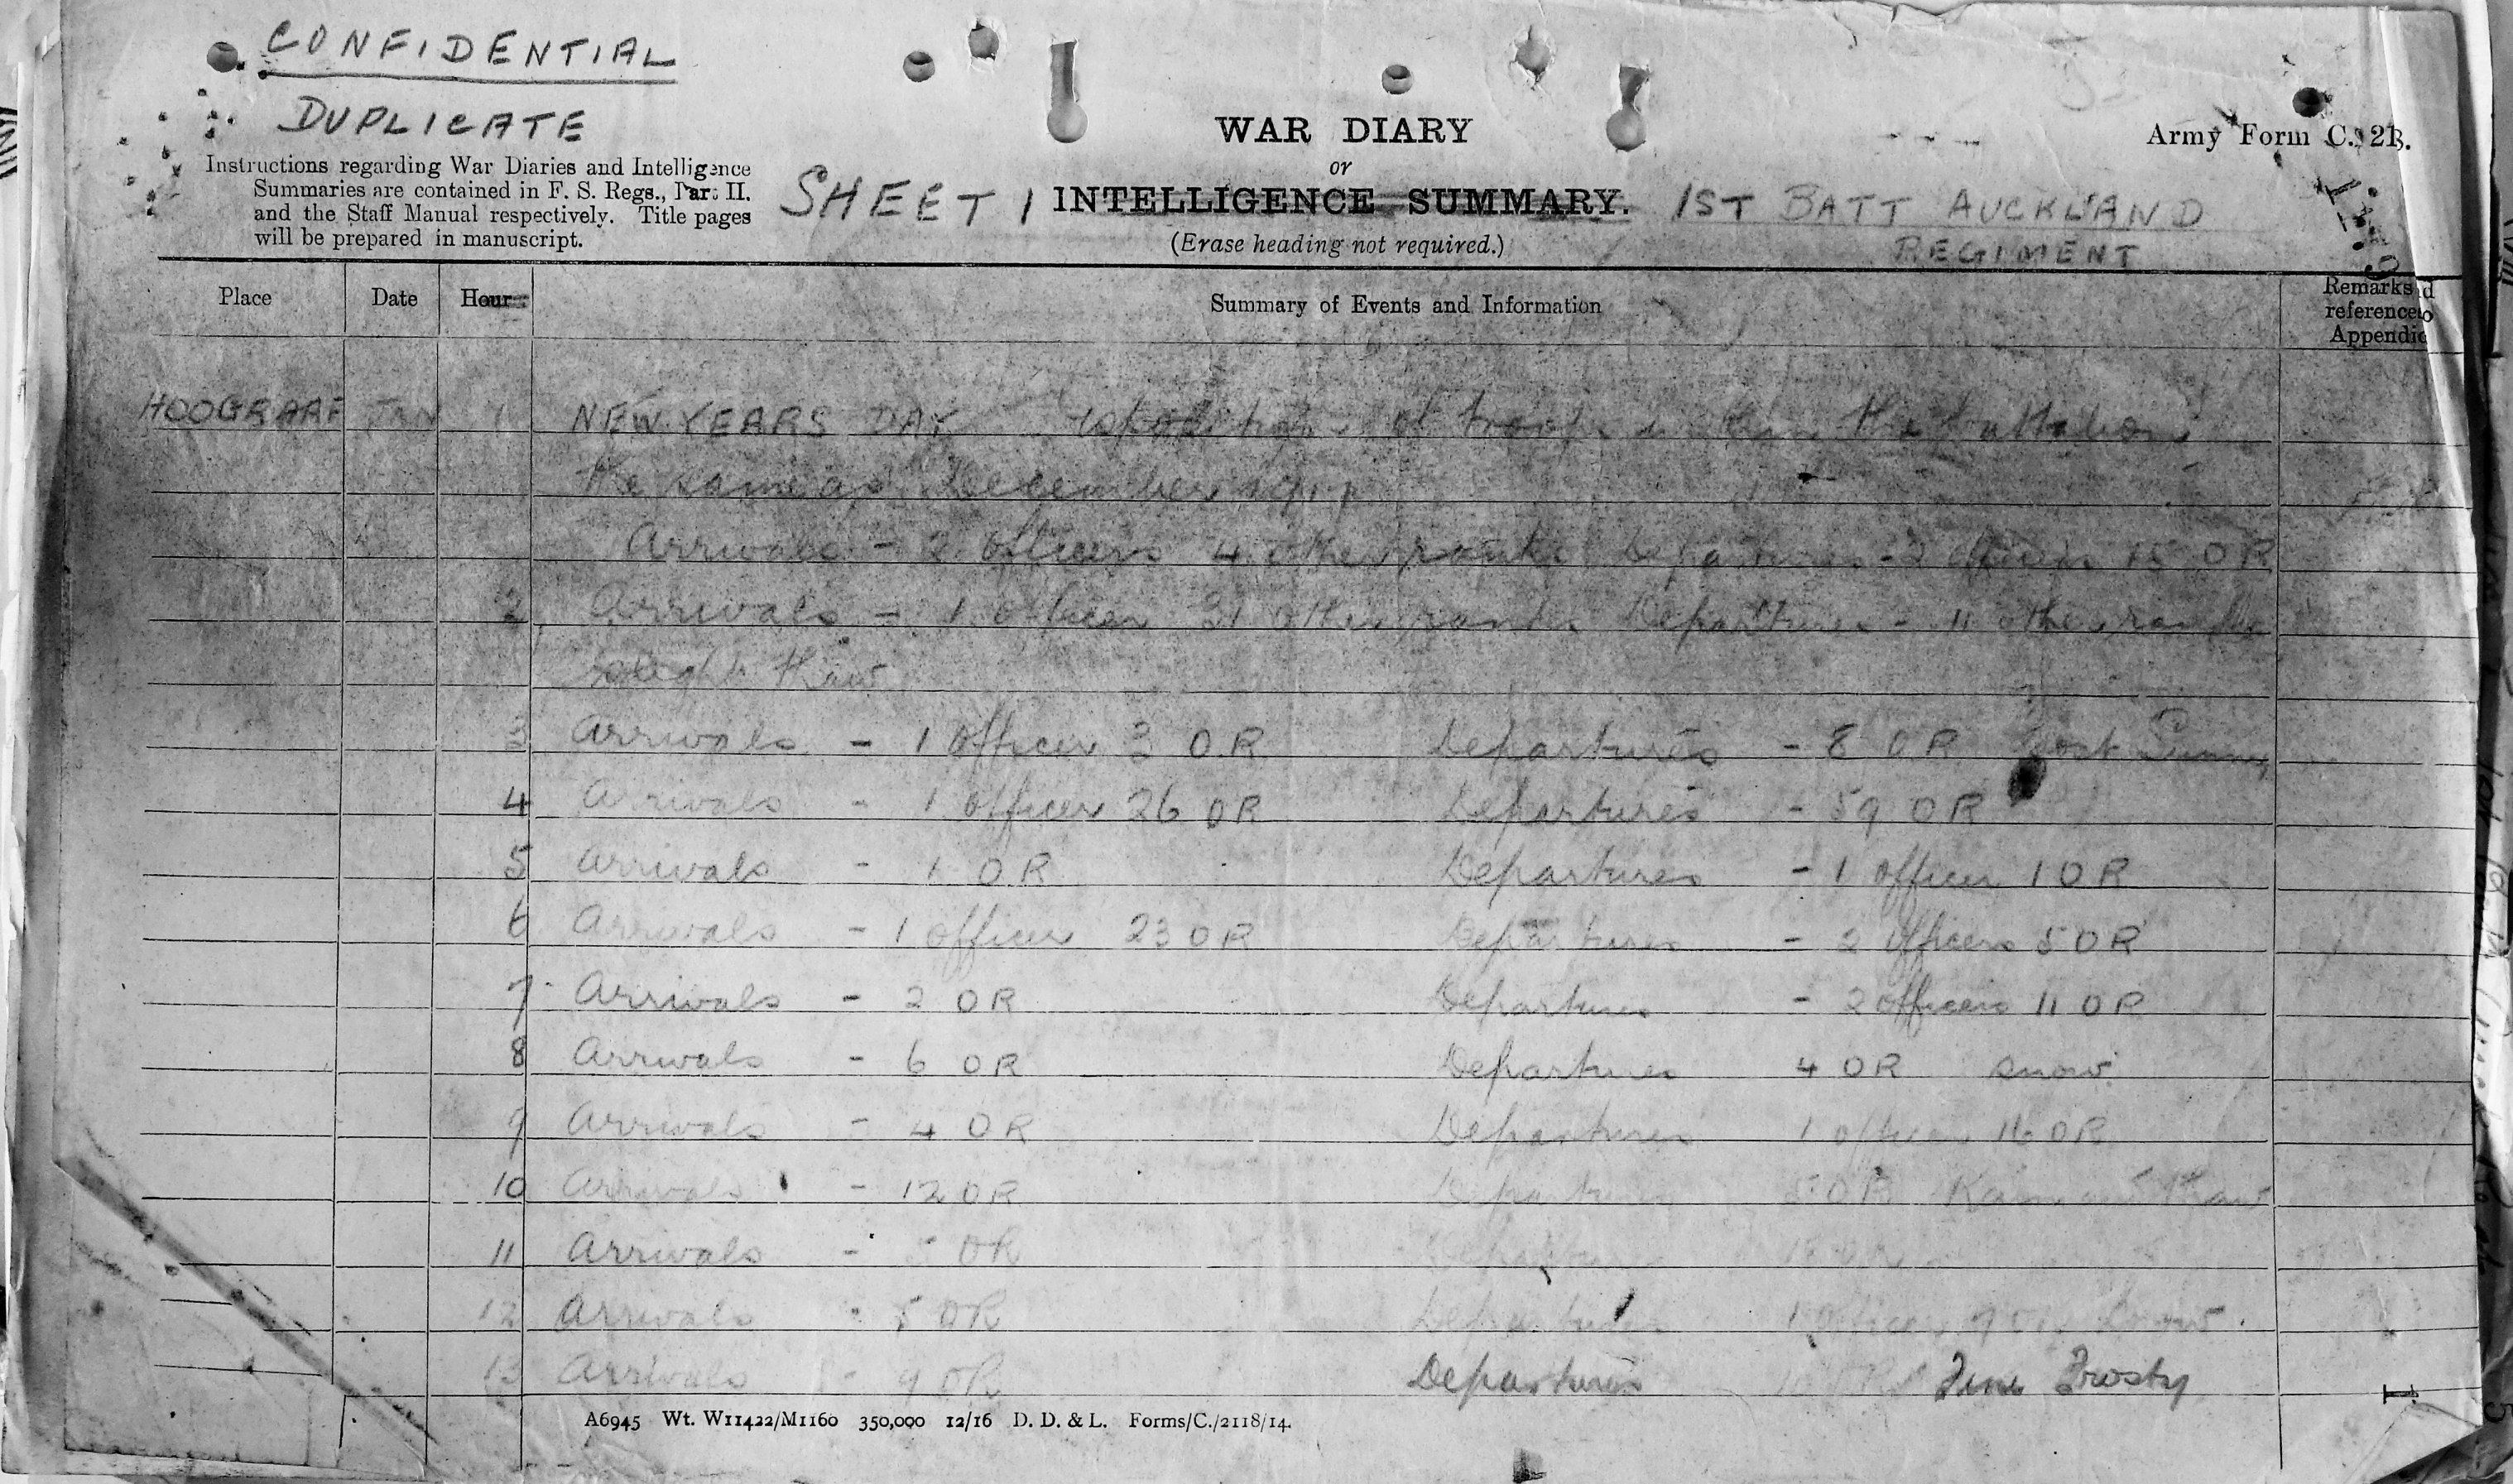 CONFIDENTIAL
DUPLICATE
Instructions regarding War Diaries and Intelligence
Summaries are contained in F. S. Regs., Part II.
and the Staff Manual respectively. Title pages
will be prepared in manuscript.
SHEET 1
WAR DIARY
or
INTELLIGENCE SUMMARY.
(Erase heading not required.)
Army Form C. 2
1ST BATT AUCKLAND
REGIMENT
Place Date Hour Summary of Events and Information
Remarks
references
Appendic
HOOGRAAF JAN 1 NEW YEARS DAY of troops the battalion
the same as December
Arrivals - 2 Officers 4 other ranks Departures - 2 Officers 15 OR
2 Arrivals - 1 Officer 31 other ranks Departures - 11 other ranks
Thaw
3 Arrivals - 1 Officer 3 OR Departures - 8 OR
4 Arrivals - 1 Officer 26 OR Departures - 59 OR
5 Arrivals - 1 OR Departures - 1 Officer 1 OR
6 Arrivals - 1 Officer 23 OR Departures - 2 Officers 5 OR
7 Arrivals - 2 OR Departures - 2 Officers 11 OR
8 Arrivals - 6 OR Departures 4 OR Snow
9 Arrivals - 4 OR Departures 1 Officer 16 OR
10 Arrivals - 12 OR Departures OR Rain and Thaw
11 Arrivals - OR Departures OR
12 Arrivals - 5 OR Departures 1 Officer Snow.
13 Arrivals - 9 OR Departures Fine Frosty
A6945 Wt. W11422/M1160 350,000 12/16 D. D. & L. Forms/C./2118/14.